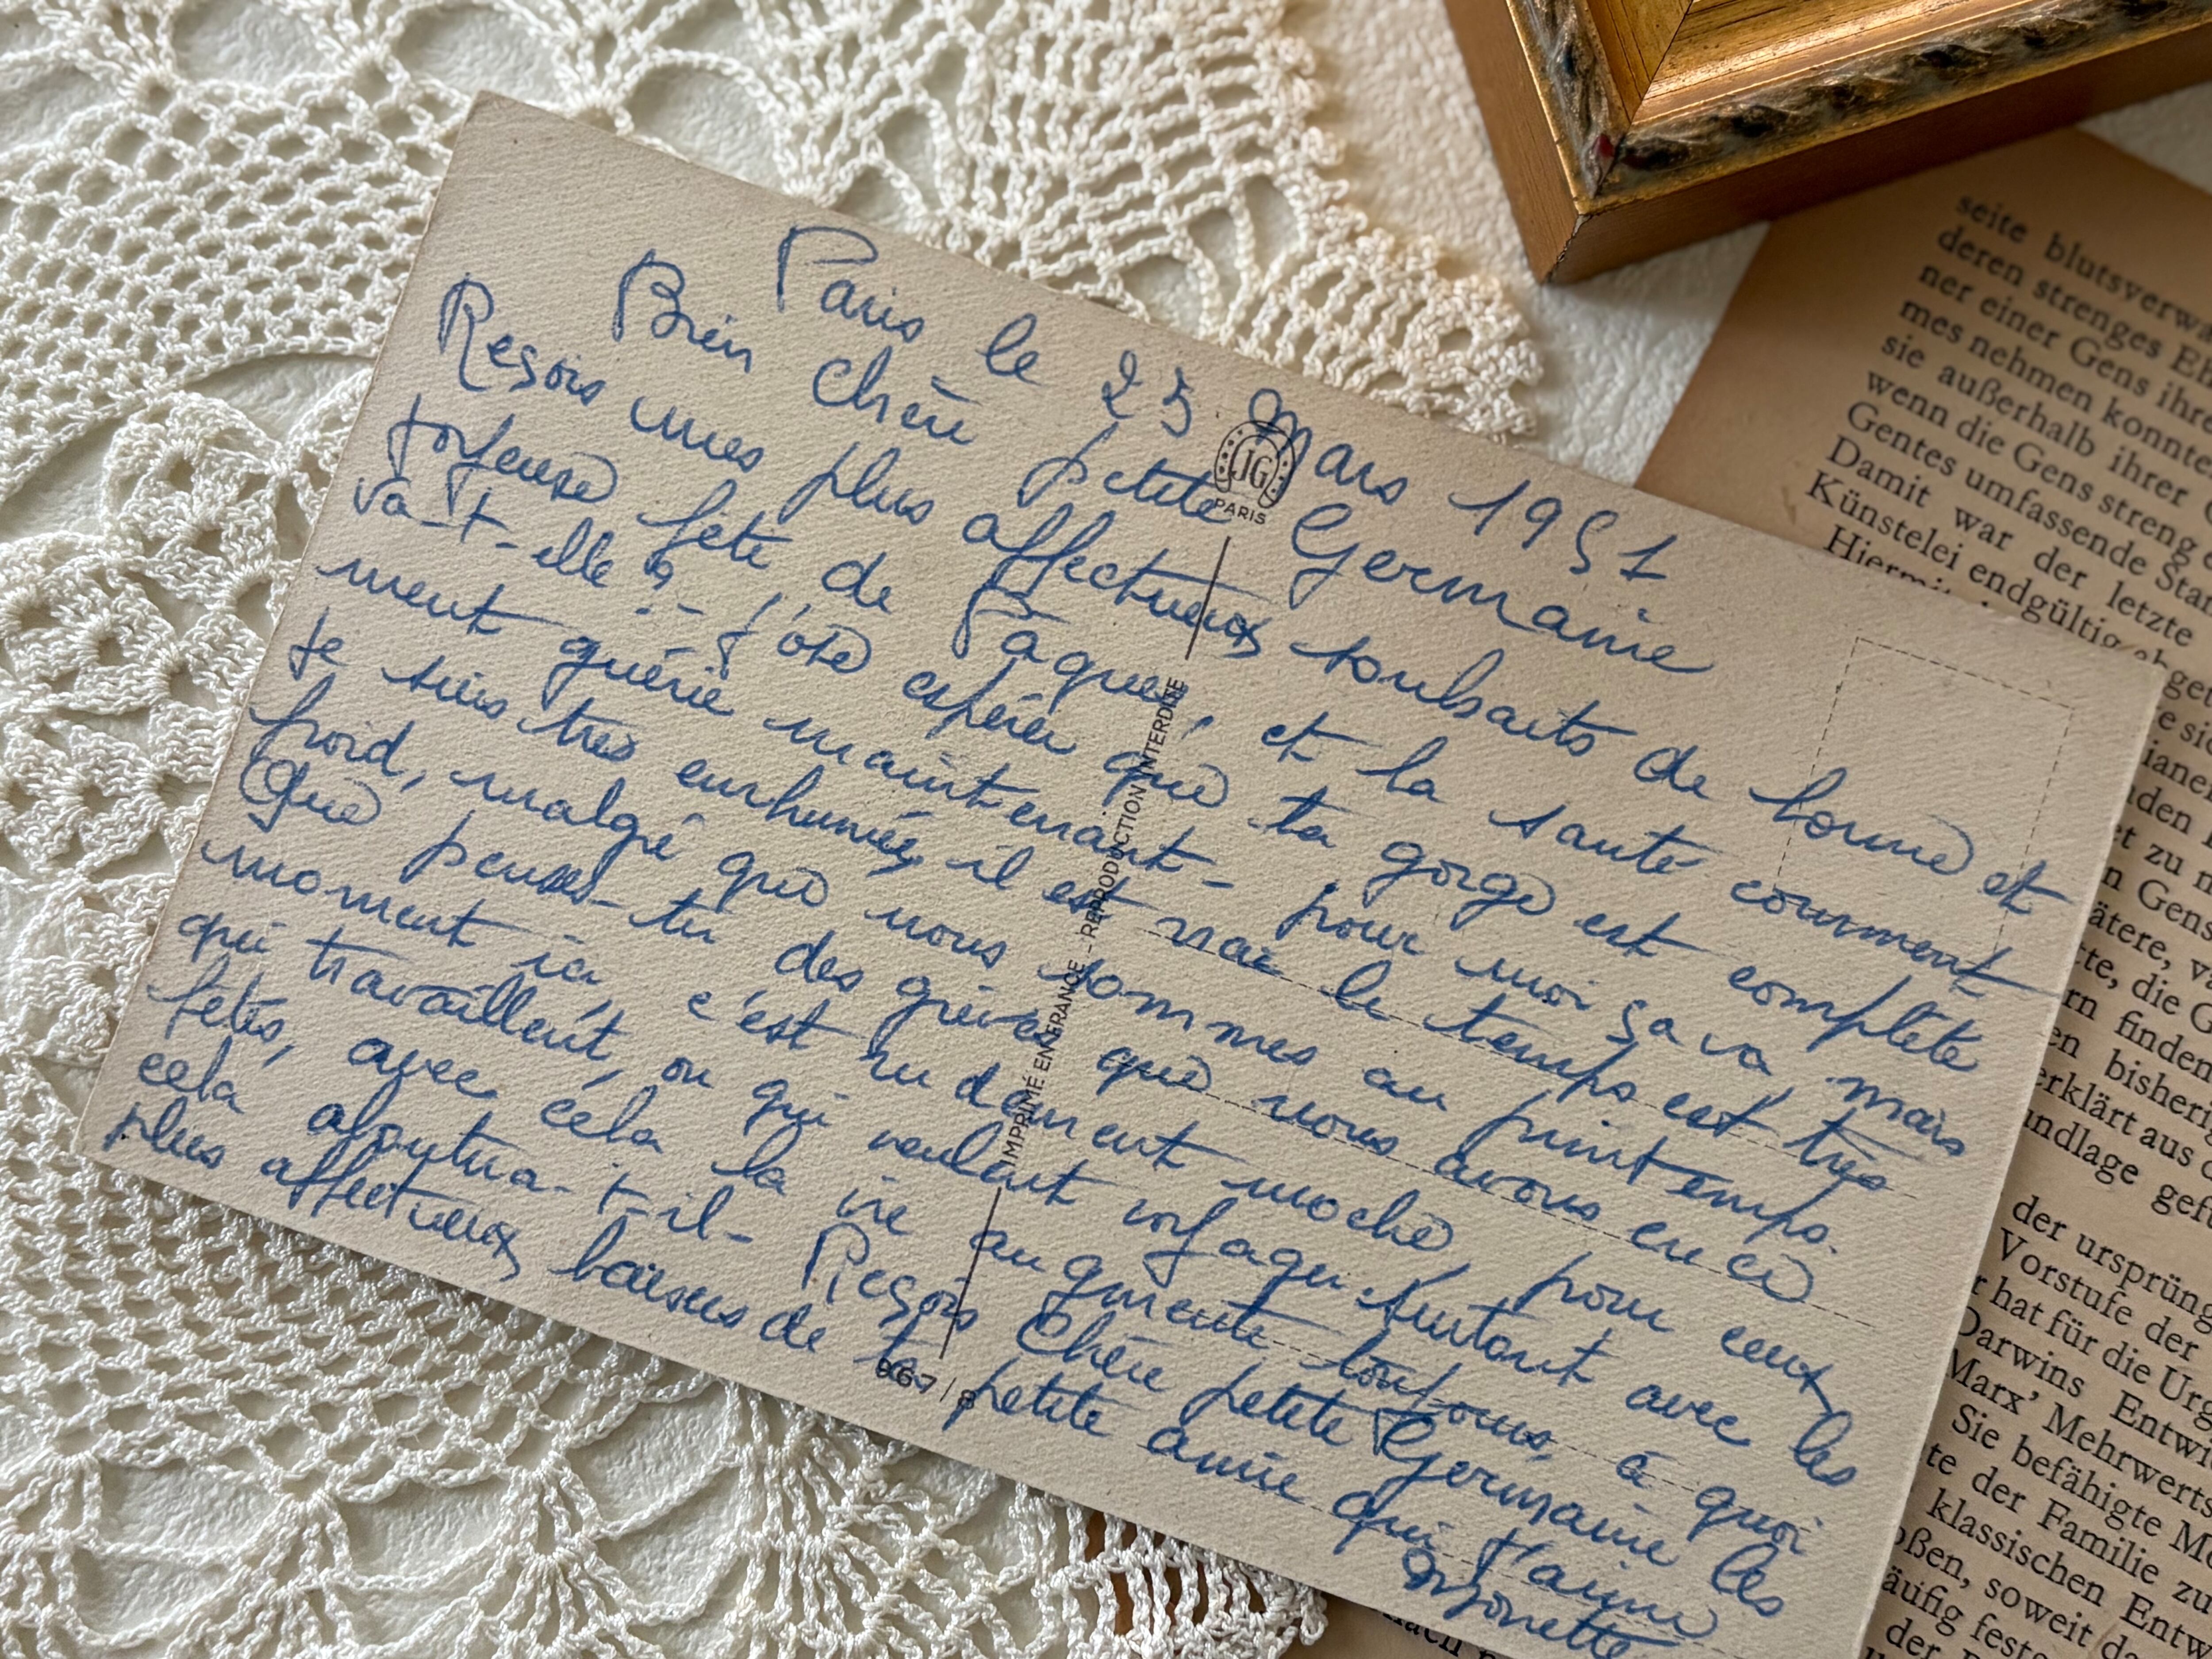 Paris le 25 Mars 1951
Bien Chère petite Germaine
Reçois mes plus affectueux souhaits de bonne et
joyeuse fête de Pâques, et la santé comment
va-t-elle ? - J'ose espérer que ta gorge est complète
ment guérie maintenant - pour moi ça va, mais
je suis très enrhumée, il est vrai le temps est très
froid, malgré que nous sommes au printemps.
Que penses-tu des grèves que nous avons en ce
moment ici, c'est rudement moche, pour ceux
qui travaillent, ou qui veulent voyager surtout avec les
fêtes, avec cela la vie augmente toujours, à quoi
cela aboutira-t-il - Reçois Chère petite Germaine les
plus affectueux baisers de ta petite amie qui t'aime
Monette
JG
PARIS
IMPRIMÉ EN FRANCE - REPRODUCTION INTERDITE
967/8
seite blutsverw
deren strenges
ner einer Gens ihre
mes nehmen konnte
sie außerhalb ihrer
wenn die Gens streng
Gentes umfassende
Damit war der letzte
Künstelei endgültig
der ursprüng
Vorstufe der
hat für die
Darwins
Marx' Mehrwerts
Sie befähigte
te der Familie zu
klassischen
soweit